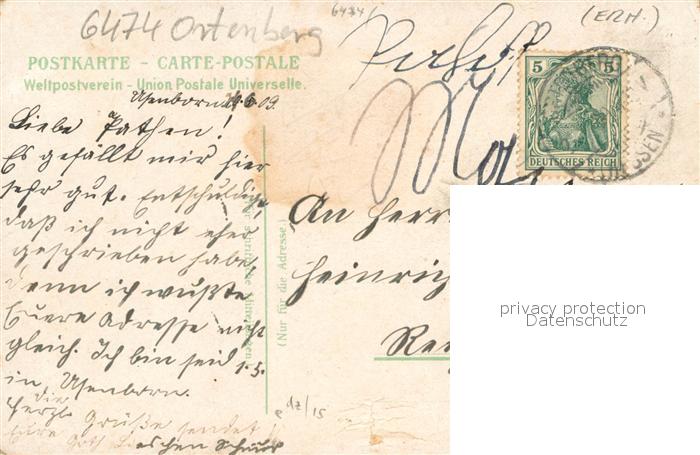 6474 Ortenberg
6474
(ERH.)
POSTKARTE - CARTE-POSTALE
Weltpostverein - Union Postale Universelle.
5 5
DEUTSCHES REICH
Usenborn 09.
Liebe Pathen!
Es gefällt mir hier
sehr gut. Entschuldigt,
daß ich nicht eher
geschrieben habe,
denn ich wußte
Euere Adresse nicht
gleich. Ich bin seid 1.5.
in Usenborn.
Herzl. Grüße sendet
Eure
An Herr
Heinrich
(Nur für die Adresse.)
privacy protection
Datenschutz